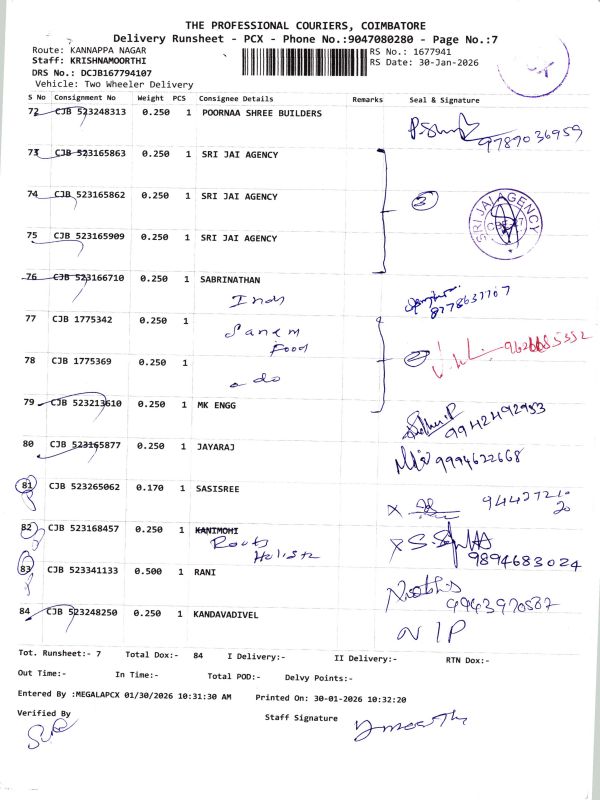 THE PROFESSIONAL COURIERS, COIMBATORE
Delivery Runsheet - PCX - Phone No.:9047080280 - Page No.:7
Route: KANNAPPA NAGAR
RS No.: 1677941
Staff: KRISHNAMOORTHI
RS Date: 30-Jan-2026
DRS No.: DCJB167794107
Vehicle: Two Wheeler Delivery
S No Consignment No Weight PCS Consignee Details Remarks Seal & Signature
72 CJB 523248313 0.250 1 POORNAA SHREE BUILDERS
9789036959
73 CJB 523165863 0.250 1 SRI JAI AGENCY
74 CJB 523165862 0.250 1 SRI JAI AGENCY
3
SRI JAI AGENCY
75 CJB 523165909 0.250 1 SRI JAI AGENCY
76 CJB 523166710 0.250 1 SABRINATHAN
8778637707
77 CJB 1775342 0.250 1
Food
78 CJB 1775369 0.250 1
2
do
79 CJB 523213610 0.250 1 MK ENGG
9942492953
80 CJB 523165877 0.250 1 JAYARAJ
9994622668
81 CJB 523265062 0.170 1 SASISREE
82 CJB 523168457 0.250 1 KANIMOHI
9894683024
83 CJB 523341133 0.500 1 RANI
9943970587
84 CJB 523248250 0.250 1 KANDAVADIVEL
N/P
Tot. Runsheet:- 7 Total Dox:- 84 I Delivery:- II Delivery:- RTN Dox:-
Out Time:- In Time:- Total POD:- Delvy Points:-
Entered By :MEGALAPCX 01/30/2026 10:31:30 AM Printed On: 30-01-2026 10:32:20
Verified By Staff Signature